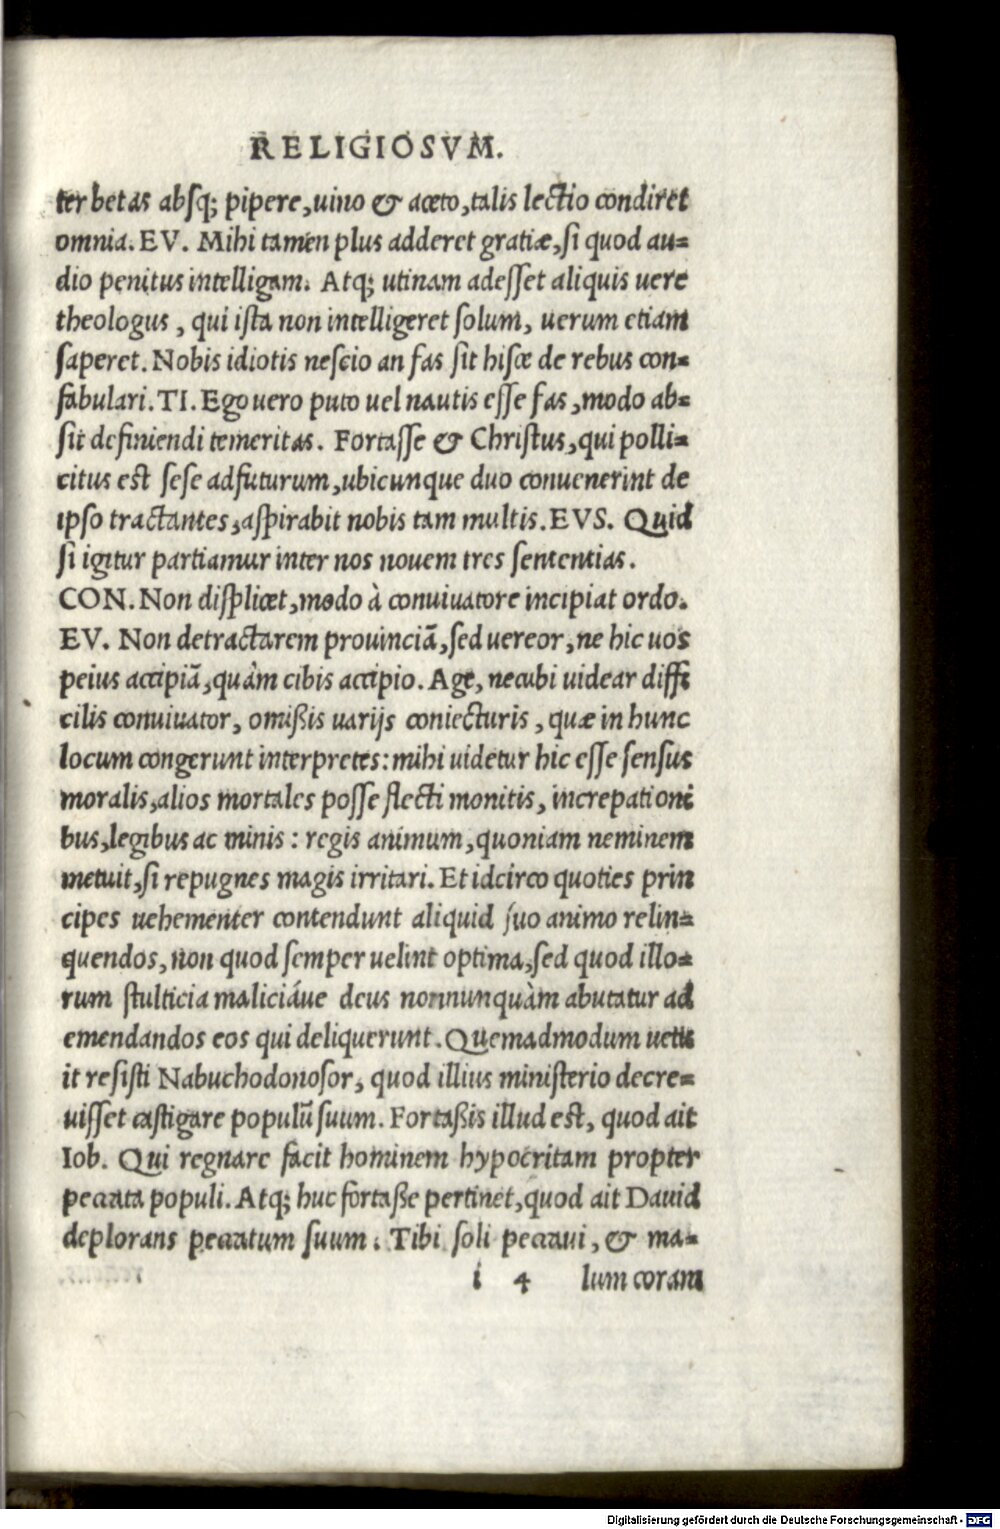 RELIGIOSVM.
ter betas absq; pipere, uino & aceto, talis lectio condiret
omnia. EV. Mihi tamen plus adderet gratiæ, si quod au=
dio penitus intelligam. Atq; utinam adesset aliquis uere
theologus, qui ista non intelligeret solum, uerum etiam
saperet. Nobis idiotis nescio an fas sit hisce de rebus con=
fabulari. TI. Ego uero puto uel nautis esse fas, modo ab=
sit definiendi temeritas. Fortasse & Christus, qui polli=
citus est sese adfuturum, ubicunque duo conuenerint de
ipso tractantes, aspirabit nobis tam multis. EVS. Quid
si igitur partiamur inter nos nouem tres sententias.
CON. Non displicet, modo à conuiuatore incipiat ordo.
EV. Non detractarem prouinciã, sed uereor, ne hic uos
peius accipiã, quàm cibis accipio. Age, necubi uidear diffi
cilis conuiuator, omißis uarijs coniecturis, quæ in hunc
locum congerunt interpretes: mihi uidetur hic esse sensus
moralis, alios mortales posse flecti monitis, increpationi
bus, legibus ac minis: regis animum, quoniam neminem
metuit, si repugnes magis irritari. Et idcirco quoties prin
cipes uehementer contendunt aliquid suo animo relin=
quendos, non quod semper uelint optima, sed quod illo=
rum stulticia maliciáue deus nonnunquàm abutatur ad
emendandos eos qui deliquerunt. Quemadmodum uetu
it resisti Nabuchodonosor, quod illius ministerio decre=
uisset castigare populũ suum. Fortaßis illud est, quod ait
Iob. Qui regnare facit hominem hypocritam propter
peccata populi. Atq; huc fortaße pertinet, quod ait Dauid
deplorans peccatum suum. Tibi soli peccaui, & ma=
i 4 lum coram
Digitalisierung gefördert durch die Deutsche Forschungsgemeinschaft - DFG